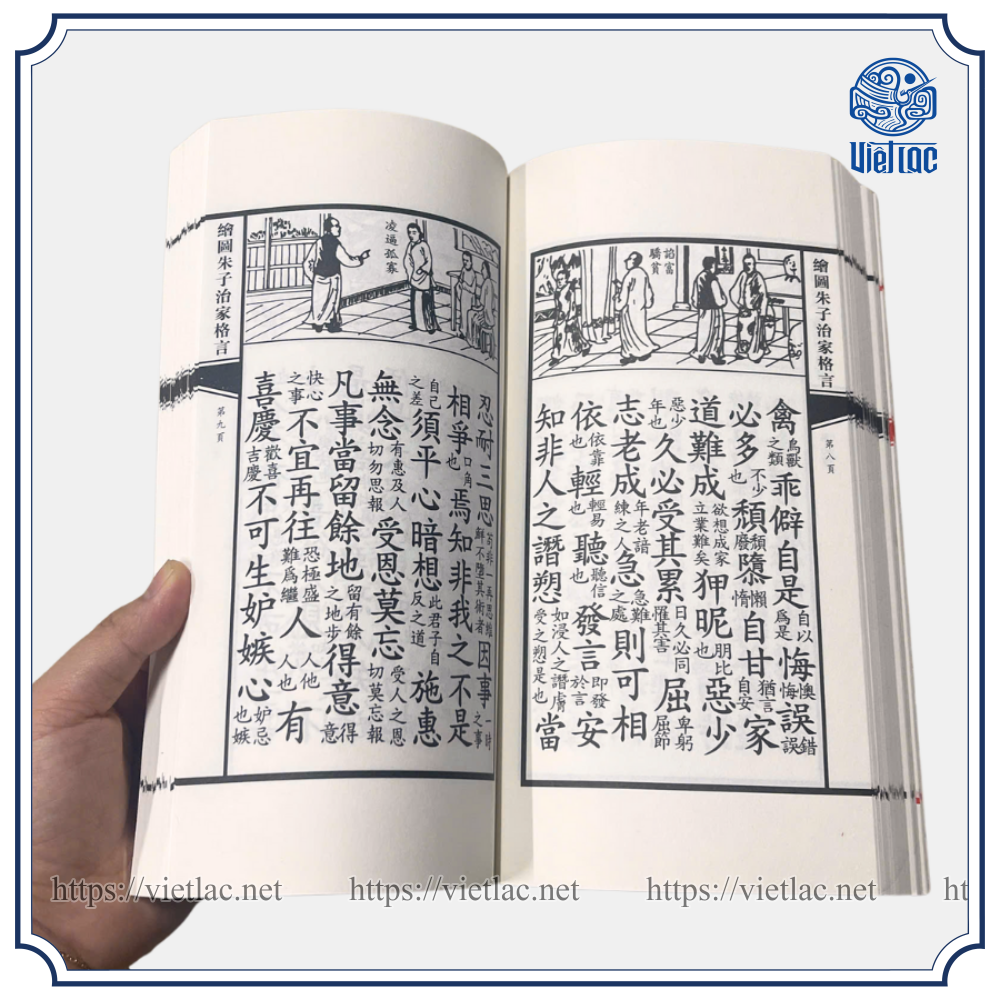 繪圖朱子治家格言
諂富
驕貧
禽鳥獸之類乖僻自是自以爲是悔懊悔誤錯誤
必多不少也頹頹廢懶惰自甘猶言自安家
道難成欲想成家立業難矣狎昵朋比也惡少
惡少年也久必受其累日久必同罹其害屈卑躬屈節
志老成年老諳練之人急急難之處則可相
依依靠也輕輕易也聽聽信也發言即發於言安
知非人之譖愬如浸人之譖膚受之愬是也當
第八頁
凌逼孤寡
忍耐三思苟非一再思維鮮不墮其術者因事一時之事
相爭口角也焉知非我之不是
自己之差須平心暗想此君子自反之道施惠
無念有惠及人切勿思報受恩莫忘受人之恩切莫忘報
凡事當留餘地留有餘之地步得意得意
快心之事不宜再往恐極盛難爲繼人人他人也有
喜慶歡喜吉慶不可生妒嫉心妒忌嫉也
繪圖朱子治家格言
第九頁
Việt Lạc
https://vietlac.net
https://vietlac.net
https://vietlac.net
ht